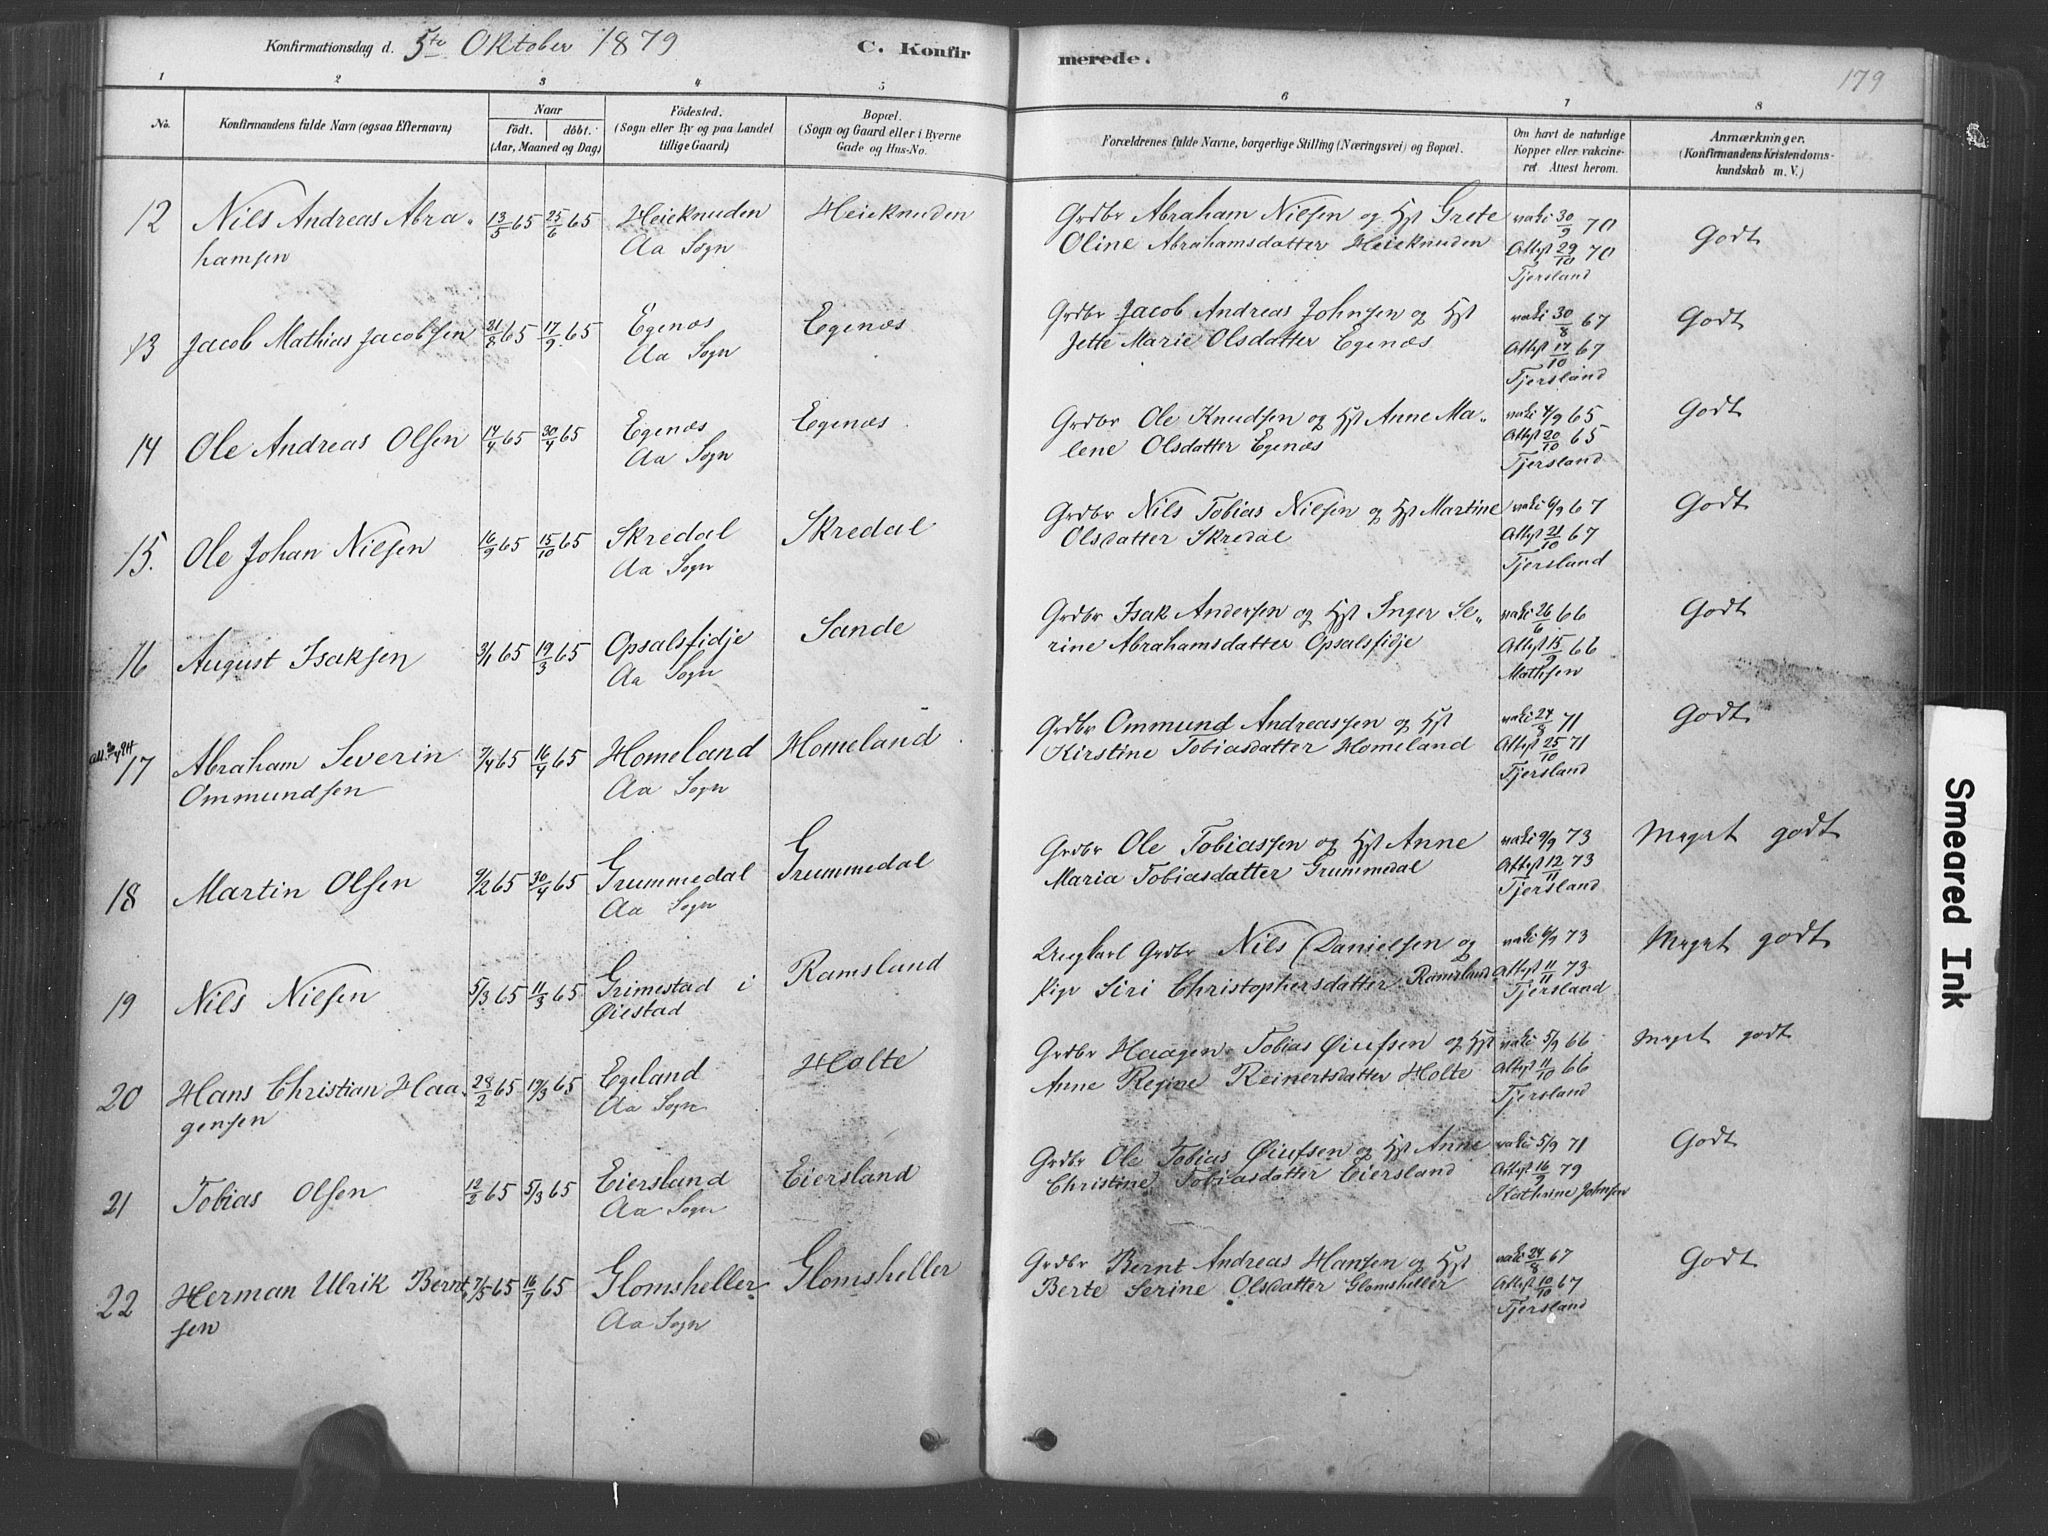 Konfirmationsdag d. 5te Oktober 1879 C. Konfirmerede. 179
1 2 3 4 5 6 7 8
No. Konfirmandens fulde Navn (ogsaa Efternavn) Naar født. døbt. (Aar, Maaned og Dag) Fødested. (Sogn eller By og paa Landet tillige Gaard) Bopæl. (Sogn og Gaard eller i Byerne Gade og Hus-No. Forældrenes fulde Navne, borgerlige Stilling (Næringsvei) og Bopæl. Om havt de naturlige Kopper eller vakcineret Attest herom. Anmærkninger. (Konfirmandens Kristendomskundskab m. V.)
12 Nils Andreas Abra- 13/5 65 25/6 65 Heieknuden Heieknuden Grdbr Abraham Nilsen og Hst Grete vaki 30/9 70 Godt
hamsen Aa Sogn Oline Abrahamsdatter Heieknuden Attest 29/10 70
Tjersland
13 Jacob Mathias Jacobsen 31/8 65 17/9 65 Egenæs Egenæs Grdbr Jacob Andreas Johnsen og Hst vaki 30/8 67 Godt
Aa Sogn Jette Marie Olsdatter Egenæs Attest 17/10 67
Tjersland
14 Ole Andreas Olsen 17/4 65 30/4 65 Egenæs Egenæs Grdbr Ole Knudsen og Hst Anne Ma- vaki 4/9 65 Godt
Aa Sogn lene Olsdatter Egenæs Attest 20/10 65
Tjersland
15. Ole Johan Nilsen 16/9 65 15/10 65 Skredal Skredal Grdbr Nils Tobias Nilsen og Hst Martine vaki 6/9 67 Godt
Aa Sogn Olsdatter Skredal Attest 21/10 67
Tjersland
16 August Isaksen 3/1 65 19/3 65 Opsalsfidje Sande Grdbr Isak Andersen og Hst Inger Se- vaki 26/6 66 Godt
Aa Sogn rine Abrahamsdatter Opsalsfidje Attest 15/9 66
Mathsen
17 Abraham Severin 7/4 65 16/4 65 Homeland Homeland Grdbr Ommund Andreassen og Hst vaki 24/8 71 Godt
Ommundsen Aa Sogn Kirstine Tobiasdatter Homeland Attest 25/10 71
Tjersland
18 Martin Olsen 9/2 65 30/4 65 Grummedal Grummedal Grdbr Ole Tobiassen og Hst Anne vaki 9/9 73 Meget godt
Aa Sogn Maria Tobiasdatter Grummedal Attest 12/11 73
Tjersland
19 Nils Nilsen 5/3 65 11/3 65 Grimestad i Ramsland Ungkarl Grdbr Nils Danielsen og vaki 6/9 73 Meget godt
Øiestad Pige Siri Christophersdatter Ramsland Attest 11/11 73
Tjersland
20 Hans Christian Haa- 28/2 65 19/3 65 Egeland Holte Grdbr Haagen Tobias Øiufsen og Hst vaki 5/9 66 Meget godt
gensen Aa Sogn Anne Regine Reinertsdatter Holte Attest 11/10 66
Tjersland
21 Tobias Olsen 12/2 65 5/3 65 Eiersland Eiersland Grdbr Ole Tobias Øiufsen og Hst Anne vaki 5/9 71 Godt
Aa Sogn Christine Tobiasdatter Eiersland Attest 16/9 79
Kathrine Johnsen
22 Herman Ulrik Bernt- 7/5 65 16/7 65 Glomsheller Glomsheller Grdbr Bernt Andreas Hansen og Hst vaki 24/8 67 Godt
sen Aa Sogn Berte Serine Olsdatter Glomsheller Attest 10/10 67
Tjersland
Smeared Ink